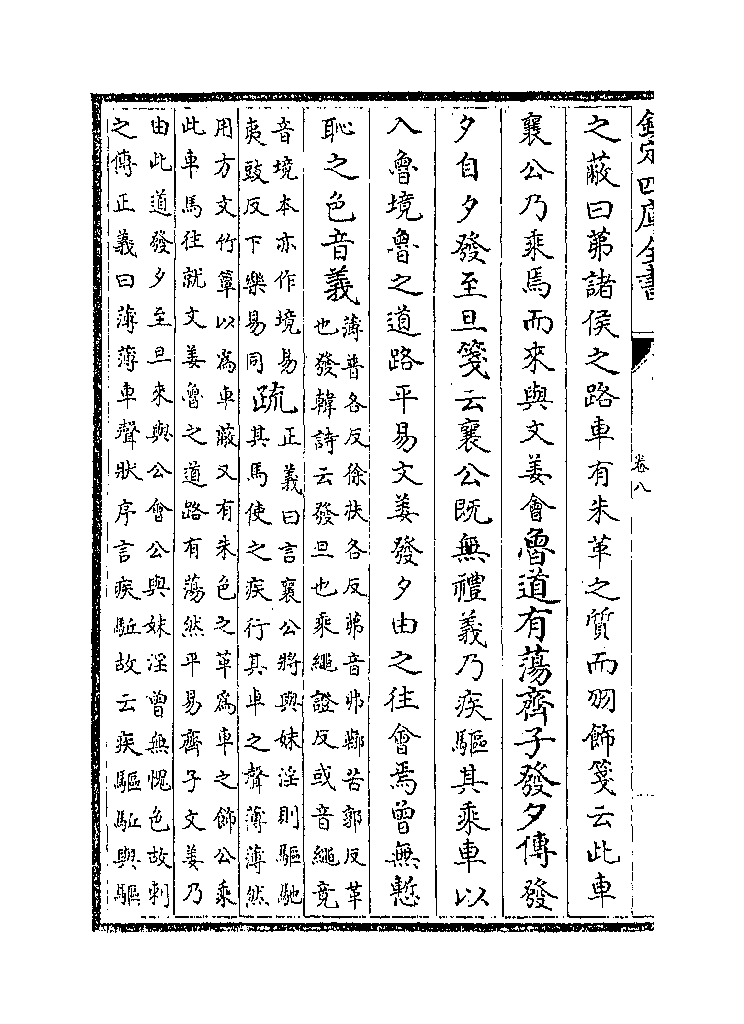 欽定四庫全書
卷八
之蔽曰茀諸侯之路車有朱革之質而羽飾箋云此車
襄公乃乘焉而來與文姜會魯道有蕩齊子發夕傳發
夕自夕發至旦箋云襄公既無禮義乃疾驅其乘車以
入魯境魯之道路平易文姜發夕由之往會焉曾無慙
恥之色音義薄普各反徐扶各反茀音弗鞹苦郭反革
也發韓詩云發旦也乘繩證反或音繩竟
音境本亦作境易
夷豉反下樂易同疏正義曰言襄公將與妹淫則驅馳
其馬使之疾行其車之聲薄薄然
用方文竹簟以為車蔽又有朱色之革為車之飾公乘
此車馬往就文姜魯之道路有蕩然平易齊子文姜乃
由此道發夕至旦來與公會公與妹淫曾無愧色故刺
之傳正義曰薄薄車聲狀序言疾駈故云疾驅駈與驅